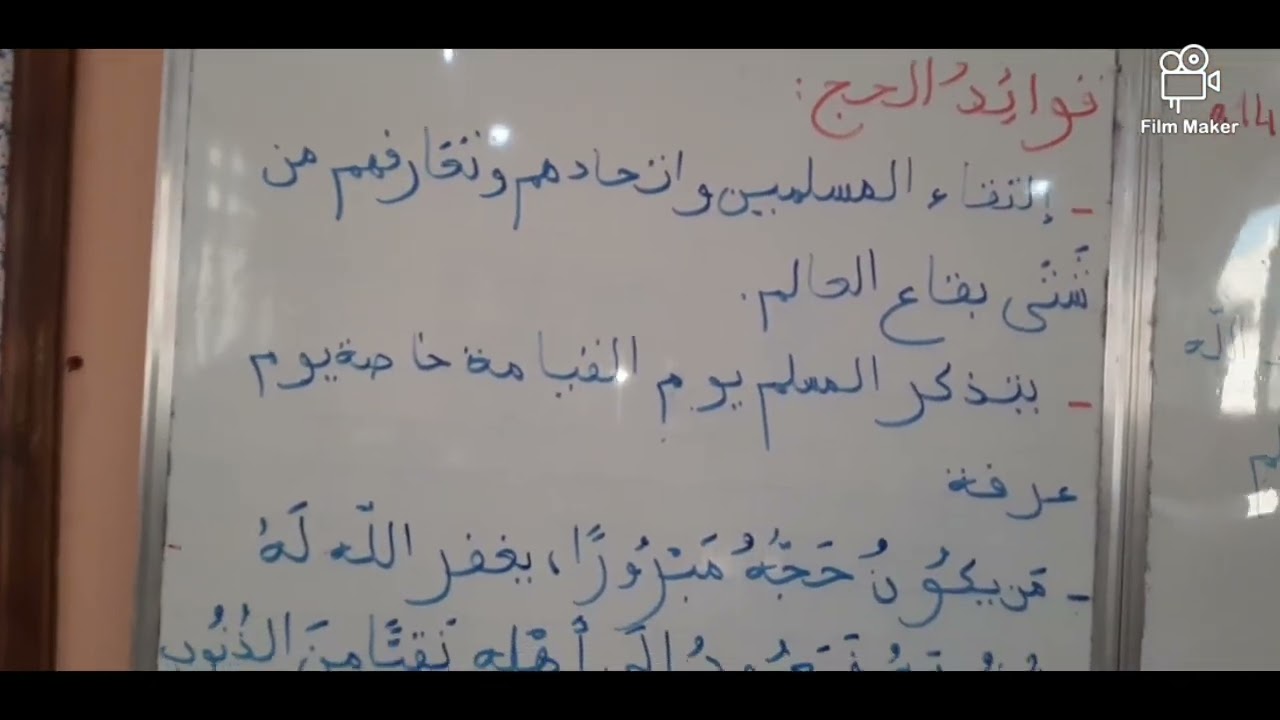 فوائِدُ الحج :
- إلتقاء المسلمين واتحادهم وتعارفهم من
شَتَّى بقاع العالم.
- يتذكر المسلم يوم القيامة خاصة يوم
عرفة
- مَن يكُونُ حَجّهُ مَبْرُورًا، يغفر اللّه لَهُ
إلَى أهْلِهِ نَقيًّا مِنَ الذُنُوبِ
اللّه
Film Maker